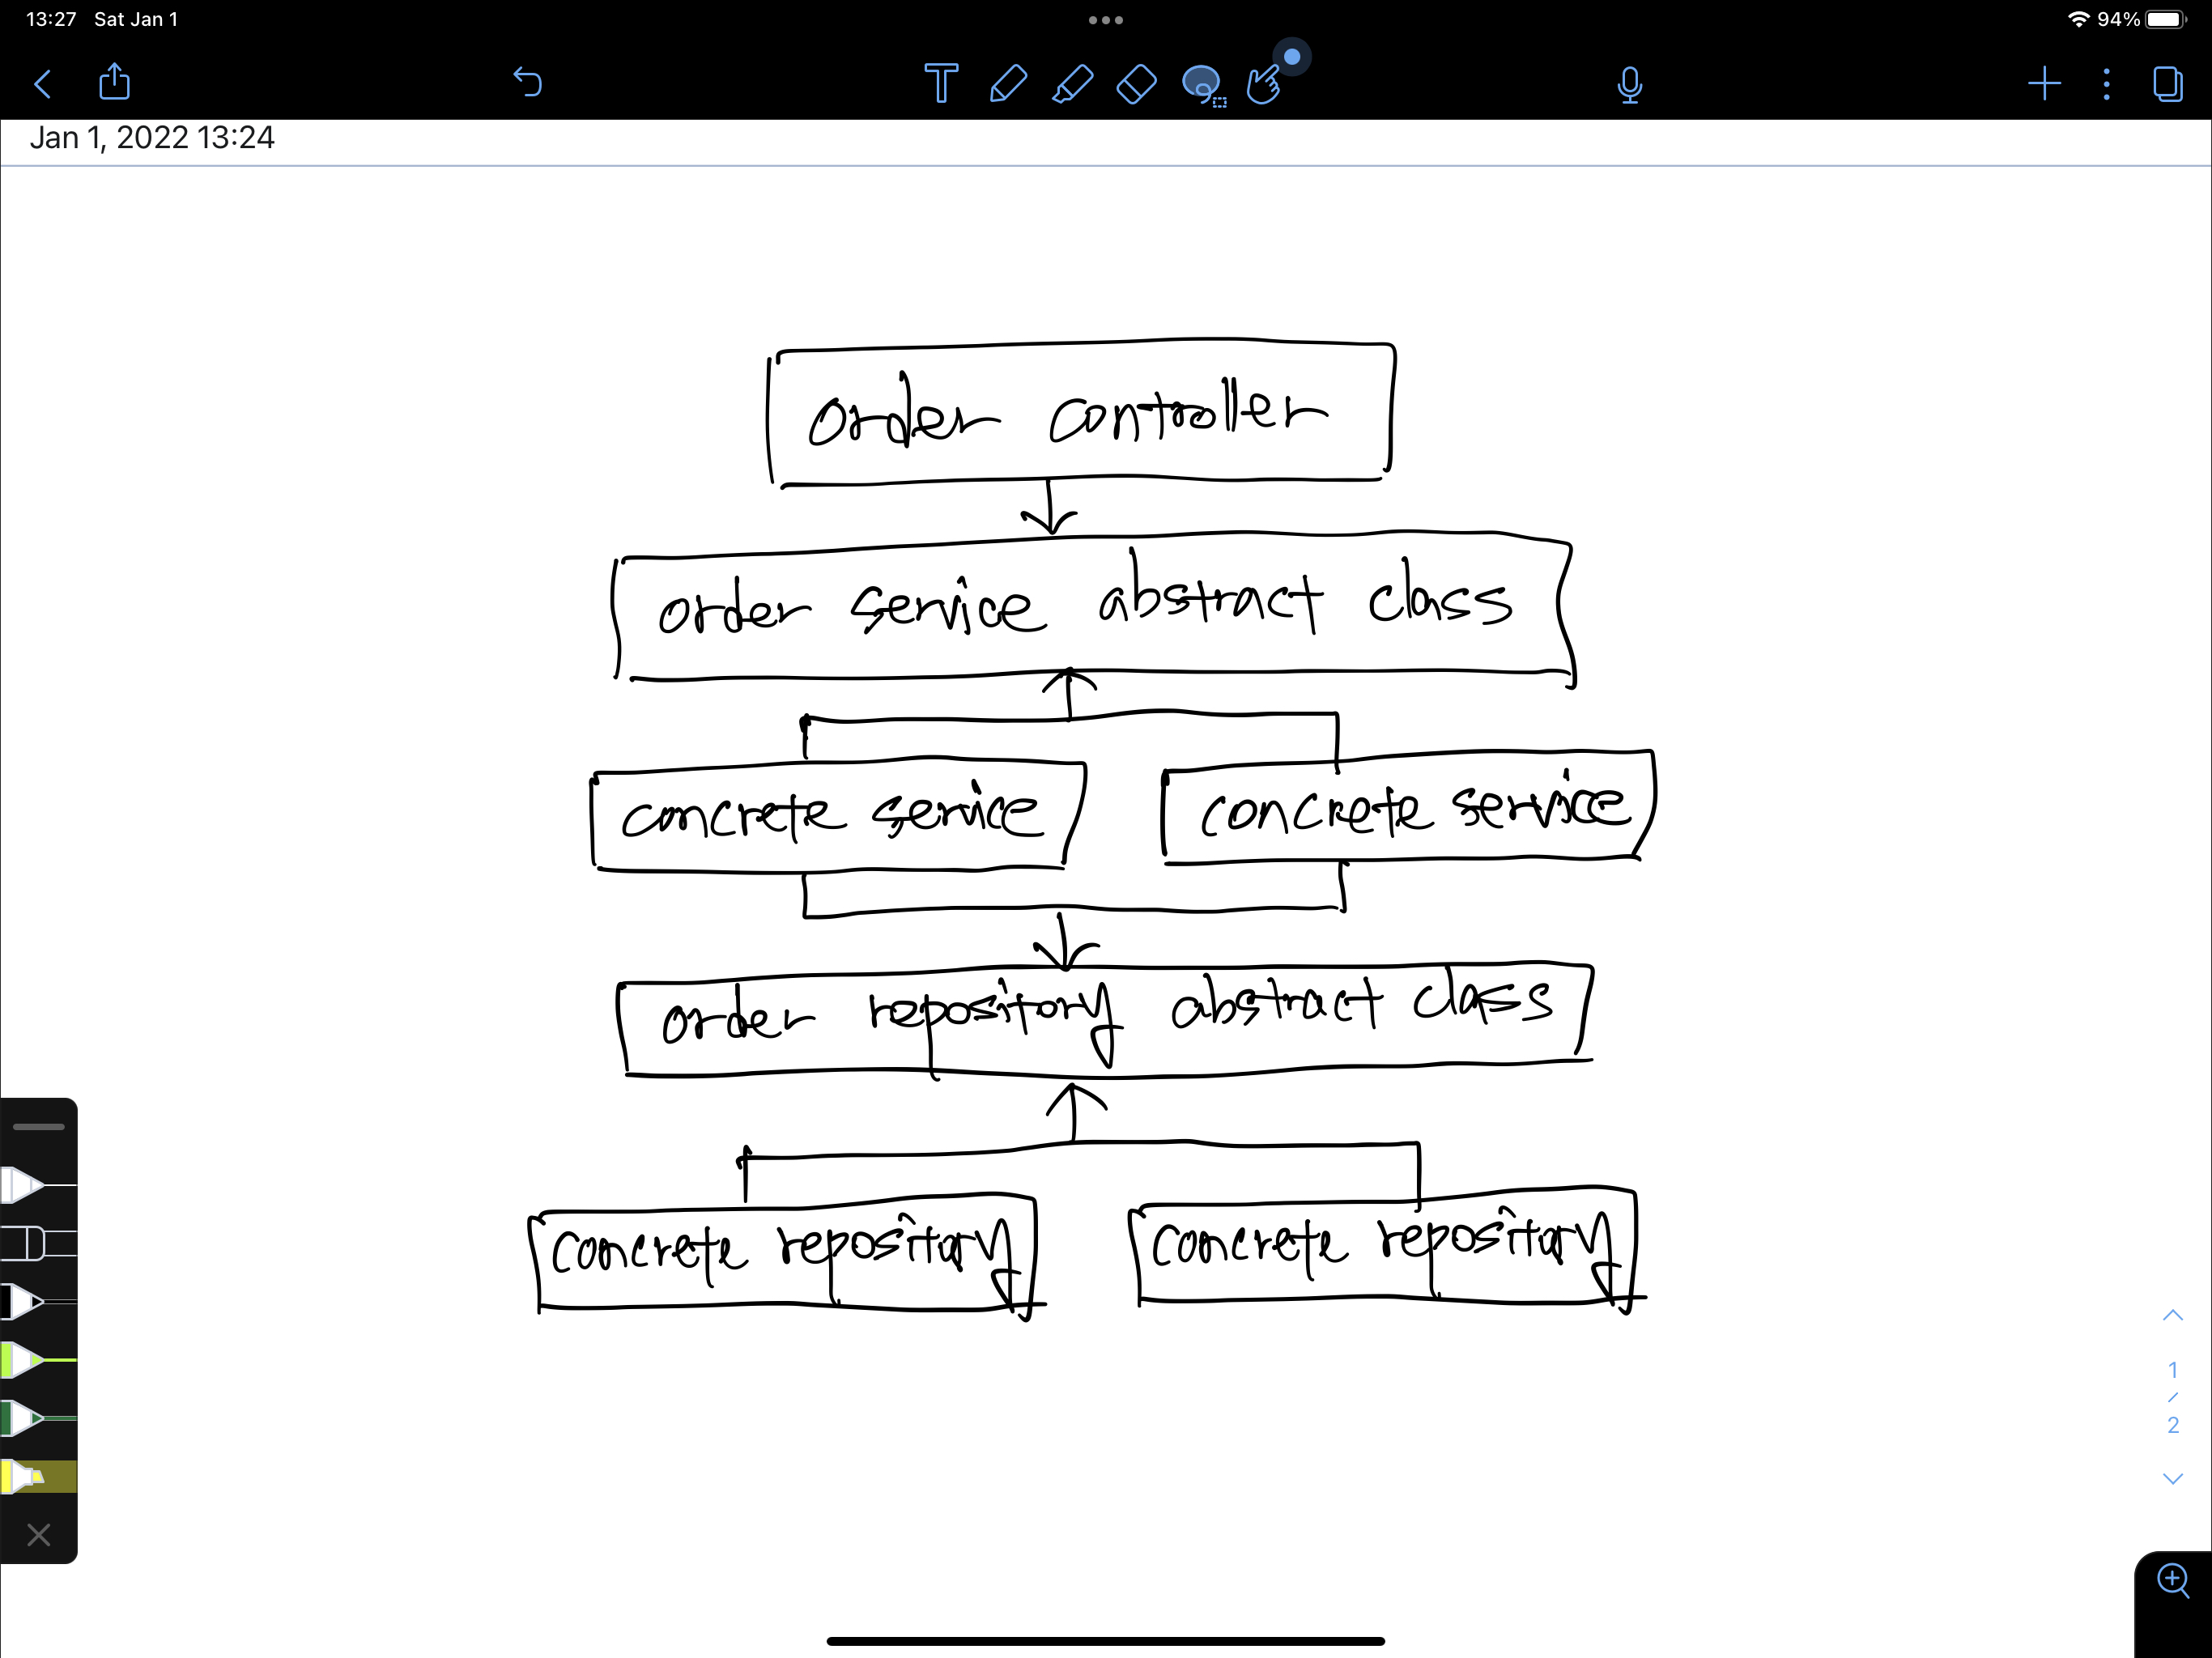 13:27 Sat Jan 1
94%
Jan 1, 2022 13:24
order controller
order service abstract class
concrete service
concrete service
order repository abstract class
concrete repository
concrete repository
1
/
2